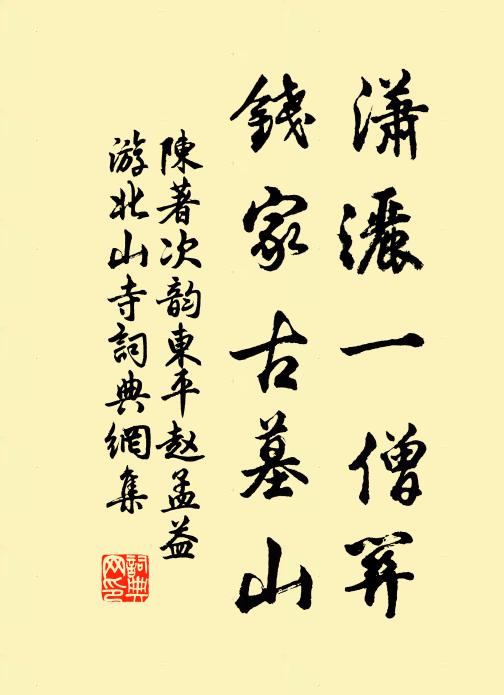 瀟灑一僧關
錢家古墓山
陳著次韵東平赵孟益
游北山寺詞典網集
詞典
网印